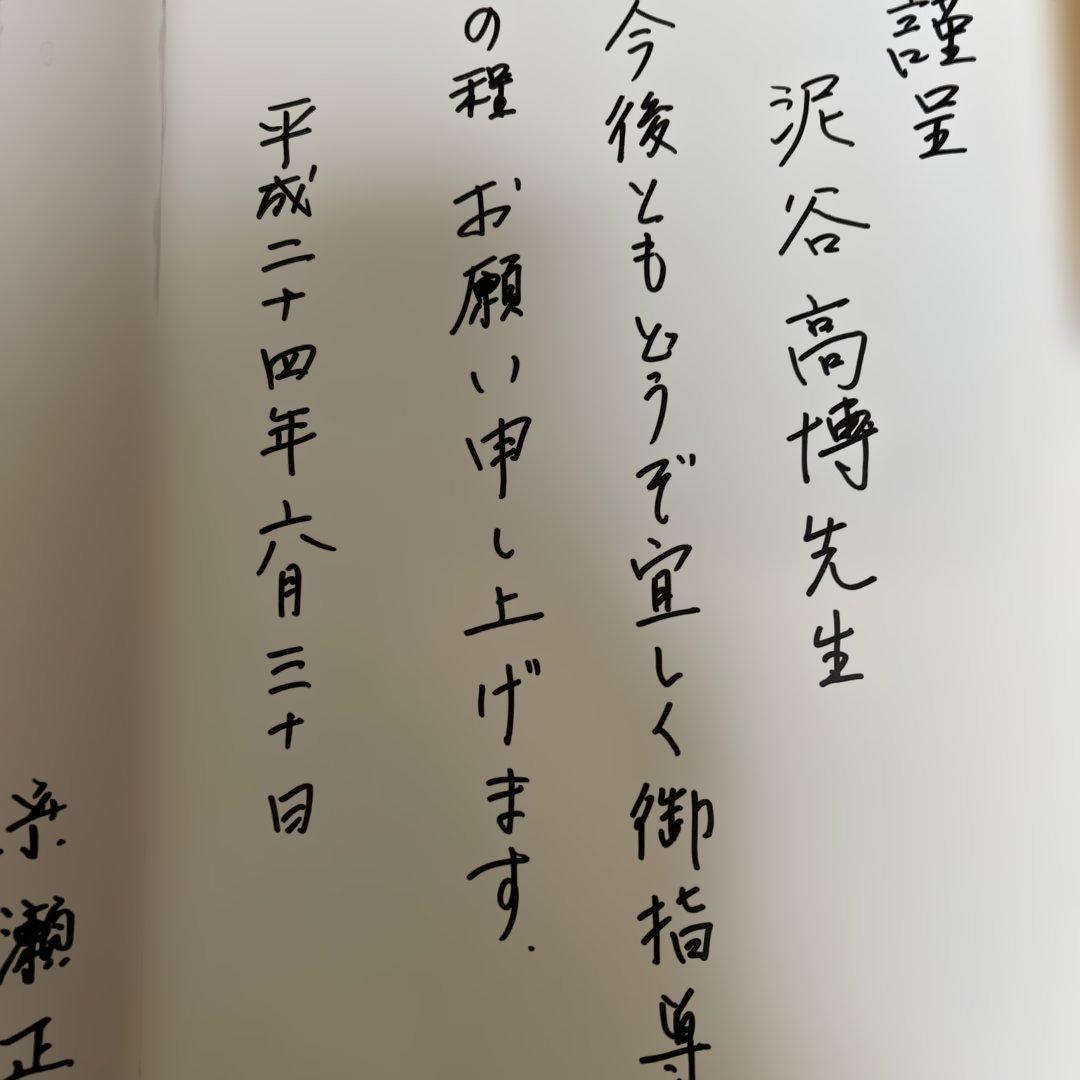 謹呈
泥谷高博先生
今後ともどうぞ宜しく御指導
の程 お願い申し上げます.
平成二十四年六月三十日
瀬正